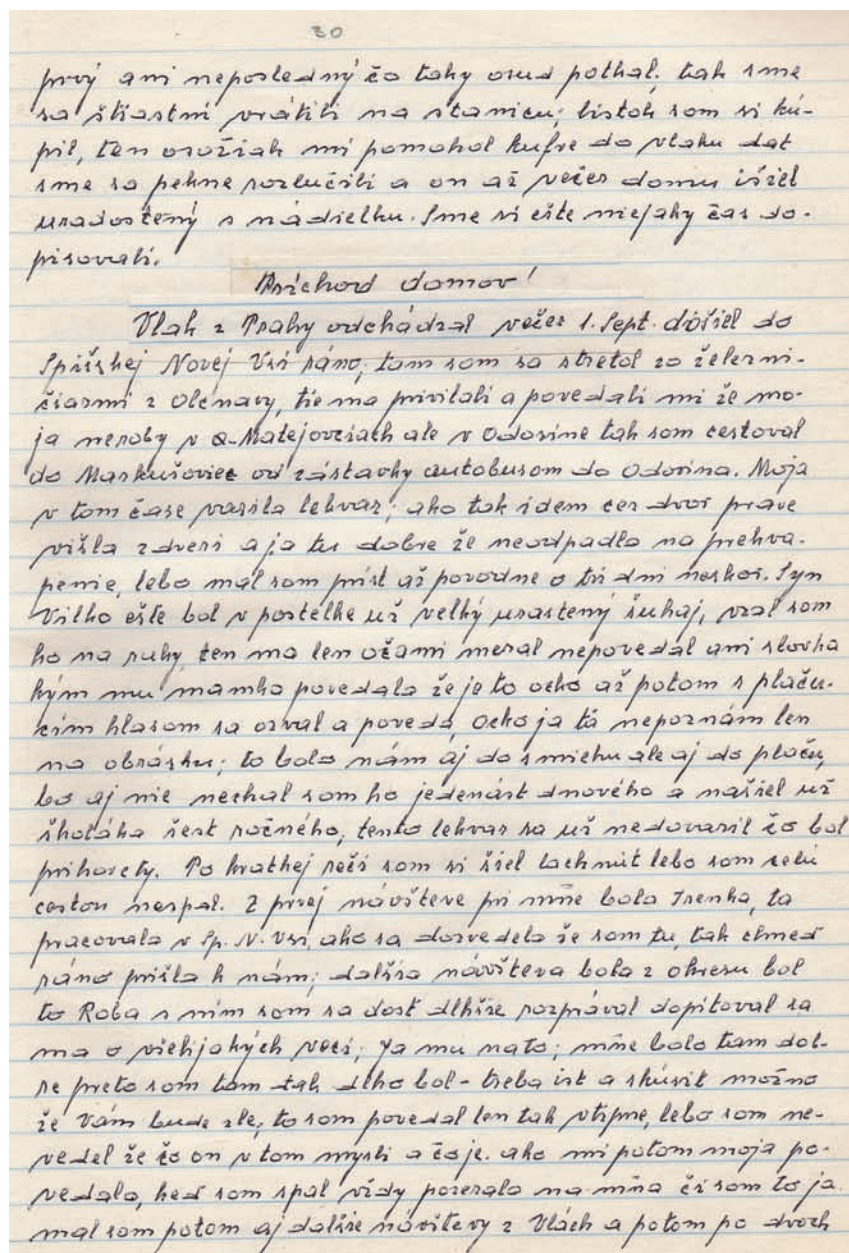 30
prvý ani neposledný čo taky osud potkal; tak sme
sa štiastni vrátili na stanicu; listok som si kú-
pil, ten orožiak mi pomohol kufre do vlaku dat
sme sa pekne rozlučili a on až večer domu išiel
uradostený s nádielku. Sme si ešte niejaky čas do-
pisovali.
Príchod domov!
Vlak z Prahy odchádzal večer 1. Sept. došiel do
Spišskej Novej Vsi ráno; tam som sa stretol zo železni-
čiarmi z Olcnavy, tie ma privitali a povedali mi že mo-
ja nerobý v Matejovciach ale v Odoríne tak som cestoval
do Markušoviec od zástavky autobusom do Odorina. Moja
v tom čase varila lekvar; ako tak idem cez dvor prave
višla z dveri a ja tu dobre že neodpadla na prekva-
penie, lebo mal som prist až povodne o tri dni neskor. Syn
Vilko ešte bol v postelke už velký urastený šuhaj, vzal som
ho na ruky, ten ma len očami meral nepovedal ani slovka
kým mu mamka povedala že je to ocko až potom s plaču-
cím hlasom sa ozval a povedá, ocko ja tá nepoznám len
na obrásku; to bolo nám aj do smiehu ale aj do plaču,
bo aj nie nechal som ho jedenást dnového a našiel už
školáka šest ročného, tento lekvar sa už nedovaril čo bol
prihorety. Po kratkej reči som si šiel lachnút lebo som celú
cestou nespal. Z prvej návšteve pri mňe bola Irenka, ta
pracovala v Sp. N. Vsi, ako sa dozvedela že som tu, tak chneď
ráno prišla k nám; dalšia návšteva bola z okresu bol
to Roba s ním som sa dosť dlhšie rozprával dopitoval sa
ma o všelijakých veci; Ja mu nato; mňe bolo tam dob-
re preto som tam tak dlho bol - treba ist a skúsit možno
že Vám bude zle, to som povedal len tak vtipne, lebo som ne-
vedel že čo on v tom mysli a čo je. ako mi potom moja po-
vedala, keď som spal vždy pozerala na mňa či som to ja.
mal som potom aj dalšie návštevy z Vlách a potom po dvoch